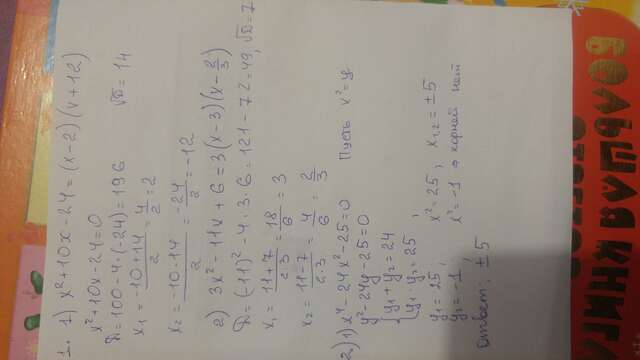 1. 1) x²+10x-24=(x-2)(x+12)
x²+10x-24=0
D=100-4·(-24)=196   √D=14
x₁=(-10+14)/2=4/2=2
x₂=(-10-14)/2=-24/2=-12
2) 3x²-11x+6=3(x-3)(x-2/3)
D=(-11)²-4·3·6=121-72=49, √D=7
x₁=(11+7)/(2·3)=18/6=3
x₂=(11-7)/(2·3)=4/6=2/3
2) 1) x⁴-24x²-25=0   Пусть x²=y
y²-24y-25=0
{y₁+y₂=24
y₁·y₂=25
y₁=25; x²=25; x₁,₂=±5
y₂=-1; x²=-1 ⇒ корней нет
Ответ: ±5
БОЛЬШАЯ КНИГА